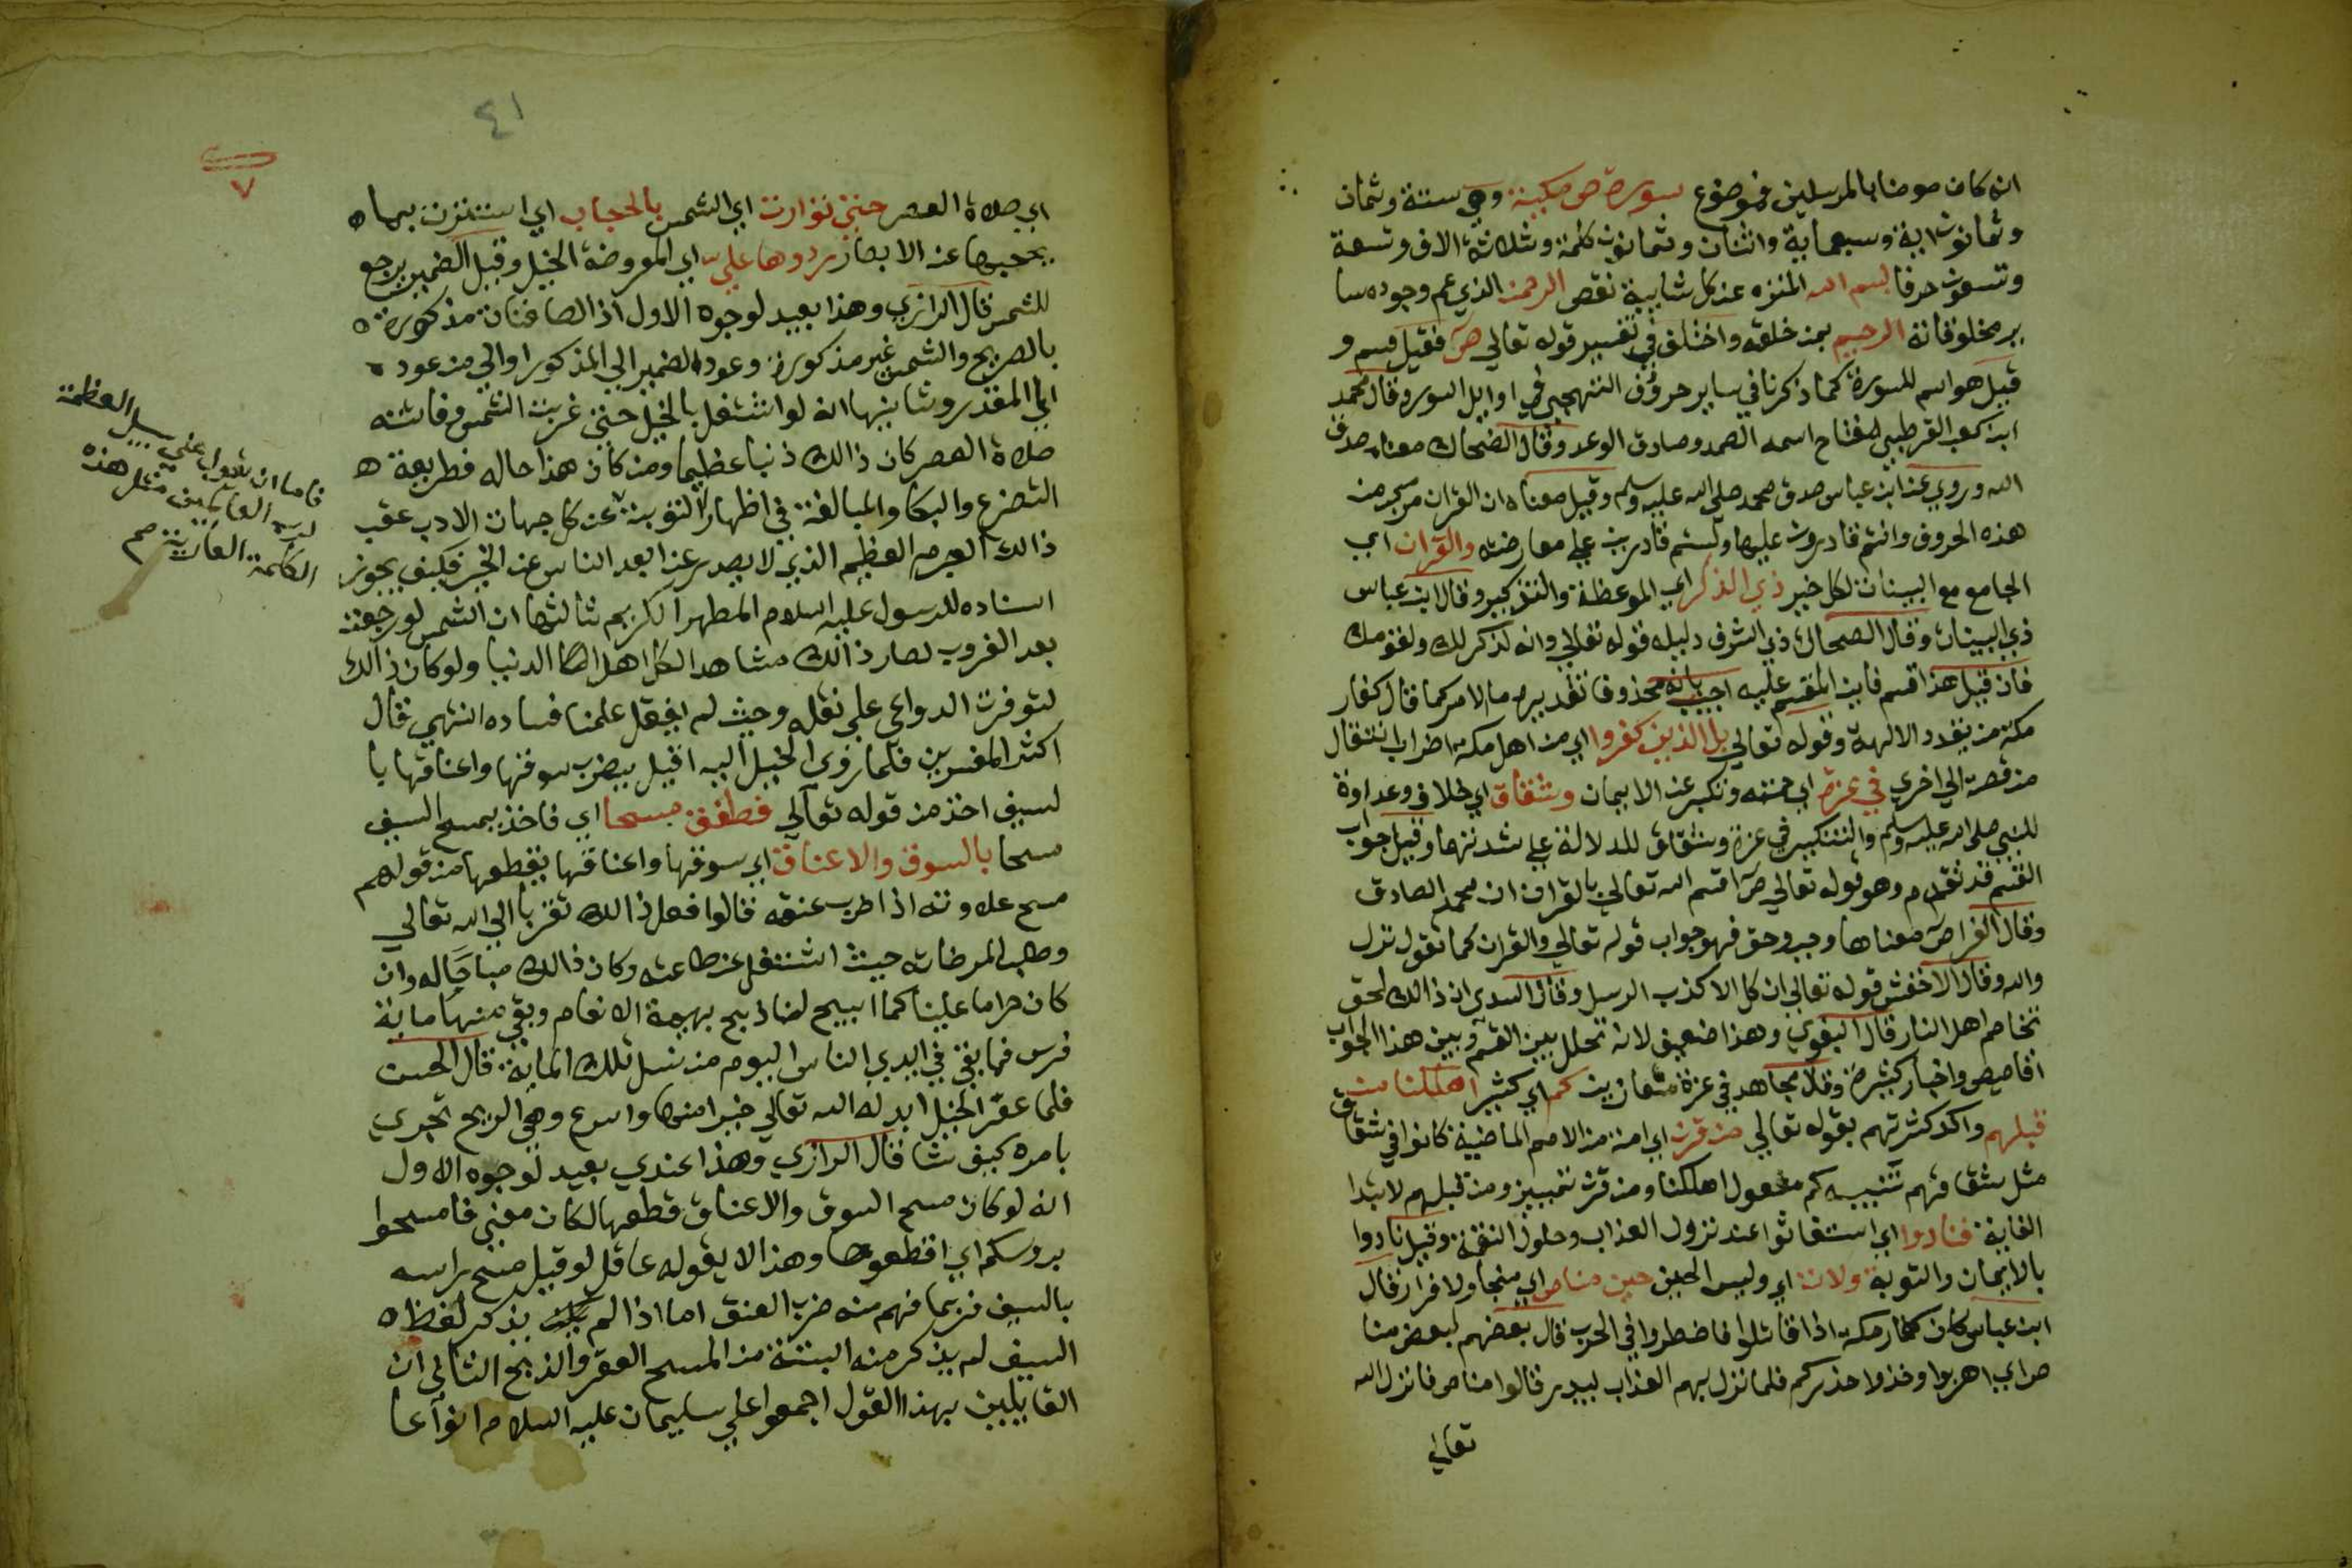 انه كان مومنا بالمرسلين فموضوع سورة ص مكية وهي ستة وثمان
وثمانون اية وسبعماية واثنان وثمانون كلمة وثلاثة الاف وتسعة
وتسعون حرفا بسم الله المنزه عن كل شايبة نقص الرحمن الذي عم وجوده سا
ير مخلوقاته الرحيم بمن خلقه واختلف في تفسير قوله تعالي ص فقيل قسم و
قيل هو اسم للسورة كما ذكرنا في ساير حروف التهجي في اوايل السور وقال محمد
ابن كعب القرطبي مفتاح اسمه الصمد وصادق الوعد وقال الضحاك معناه صدق
الله وروي عن ابن عباس صدق محمد صلي الله عليه وسلم وقيل معناه ان القران مركب من
هذه الحروف وانتم قادرون عليها ولستم قادرين علي معارضته والقران اي
الجامع مع البينات لكل خير ذي الذكر اي الموعظة والتذكير وقال ابن عباس
ذي البينات وقال الضحاك ذي الشرف دليله قوله تعالي وانه لذكر لك ولقومك
فان قيل هذا قسم فاين المقسم عليه اجيب بانه محذوف تقديره ما الامر كما قال كفار
مكة من تعدد الالهة وقوله تعالي بل الذين كفروا اي من اهل مكة اضراب انتقال
من قصة الي اخري في عزة اي حمية وتكبر عن الايمان وشقاق اي خلاف وعداوة
للنبي صلي الله عليه وسلم والتنكير في عزة وشقاق للدلالة علي شدتهما وقيل جواب
القسم قد تقدم وهو قوله تعالي ص اقسم الله تعالي بالقران ان محمد الصادق
وقال الفرا ص معناها وجب وحق فهو جواب قوله تعالي والقران كما تقول نزل
والله وقال الاخفش قوله تعالي ان كل الا كذب الرسل وقال السدي ان ذالك لحق
تخاصم اهل النار قال البغوي وهذا ضعيف لانه تخلل بين القسم وبين هذا الجواب
اقاصيص واخبار كثيرة وقال مجاهد في عزة متعازين كم اي كثير اهلكنا من
قبلهم واكد كثرتهم بقوله تعالي من قرن اي امة من الامم الماضية كانوا في شقاق
مثل شقاقهم تنبيه كم مفعول اهلكنا ومن قرن تمييز ومن قبلهم لابتدا
الغاية فنادوا اي استغاثوا عند نزول العذاب وحلول النقمة وقيل نادوا
بالايمان والتوبة ولات اي وليس الحين حين مناص اي منجا ولا فرار قال
ابن عباس كان كفار مكة اذا قاتلوا فاضطروا في الحرب قال بعضهم لبعض منا
ص اي اهربوا وخذوا حذركم فلما نزل بهم العذاب ببدر قالوا مناص فانزل الله
تعالي
٤١
٧
اي صلاة العصر حتي توارت اي الشمس بالحجاب اي استترت بما
يحجبها عن الابصار ردوها علي اي المعروضة الخيل وقيل الضمير يرجع
للشمس قال الرازي وهذا بعيد لوجوه الاول اذ الصافنات مذكورة
بالصريح والشمس غير مذكورة وعود الضمير الي المذكور اوالي من عود
الي المقدر وثانيها انه لو اشتغل بالخيل حتي غربت الشمس وفاتته
صلاة العصر كان ذالك ذنبا عظيما ومن كان هذا حاله فطريقه
التضرع والبكا والمبالغة في اظهار التوبة
ذالك الجرم العظيم الذي لا يصدر عن ابعد الناس عن الخير فكيف يجوز
اسناده للرسول عليه السلام المطهر الكريم ثالثها ان الشمس لو رجعت
بعد الغروب لصار ذالك مشاهدا لكل اهل الدنيا ولو كان ذالك
لتوفرت الدواعي علي نقله وحيث لم يفعل علمنا فساده انتهي قال
اكثر المفسرين فلما روي الخيل اليه اقبل يضرب سوقها واعناقها با
لسيف اخذ من قوله تعالي فطفق مسحا اي فاخذ يمسح السيف
مسحا بالسوق والاعناق اي سوقها واعناقها يقطعها من قولهم
مسح علاوته اذا ضرب عنقه قالوا فعل ذالك تقربا الي الله تعالي
وطلب لمرضاته حيث اشتغل عن طاعته وكان ذالك مباحا له وان
كان حراما علينا كما ابيح لنا ذبح بهيمة الانعام وبقي منها ماية
فرس فما بقي في ايدي الناس اليوم من نسل تلك الماية قال الحسن
فلما عقر الخيل ابدله الله تعالي خيرا منها واسرع وهي الريح تجري
بامره كيف شا قال الرازي وهذا عندي بعيد لوجوه الاول
انه لو كان مسح السوق والاعناق قطعها لكان معني فامسحوا
بروسكم اي اقطعوها وهذا لا يقوله عاقل لو قيل مسح براسه
بالسيف فربما فهم منه ضرب العنق اما اذا لم يذكر لفظ
السيف لم يذكر منه البتة من المسح العقر والذبح الثاني ان
القايلين بهذا القول اجمعوا علي سليمان عليه السلام انواعا
فاما ان يقول علي سبيل العظمة
لرب العالمين مثل هذه
الكلمة العارية صح